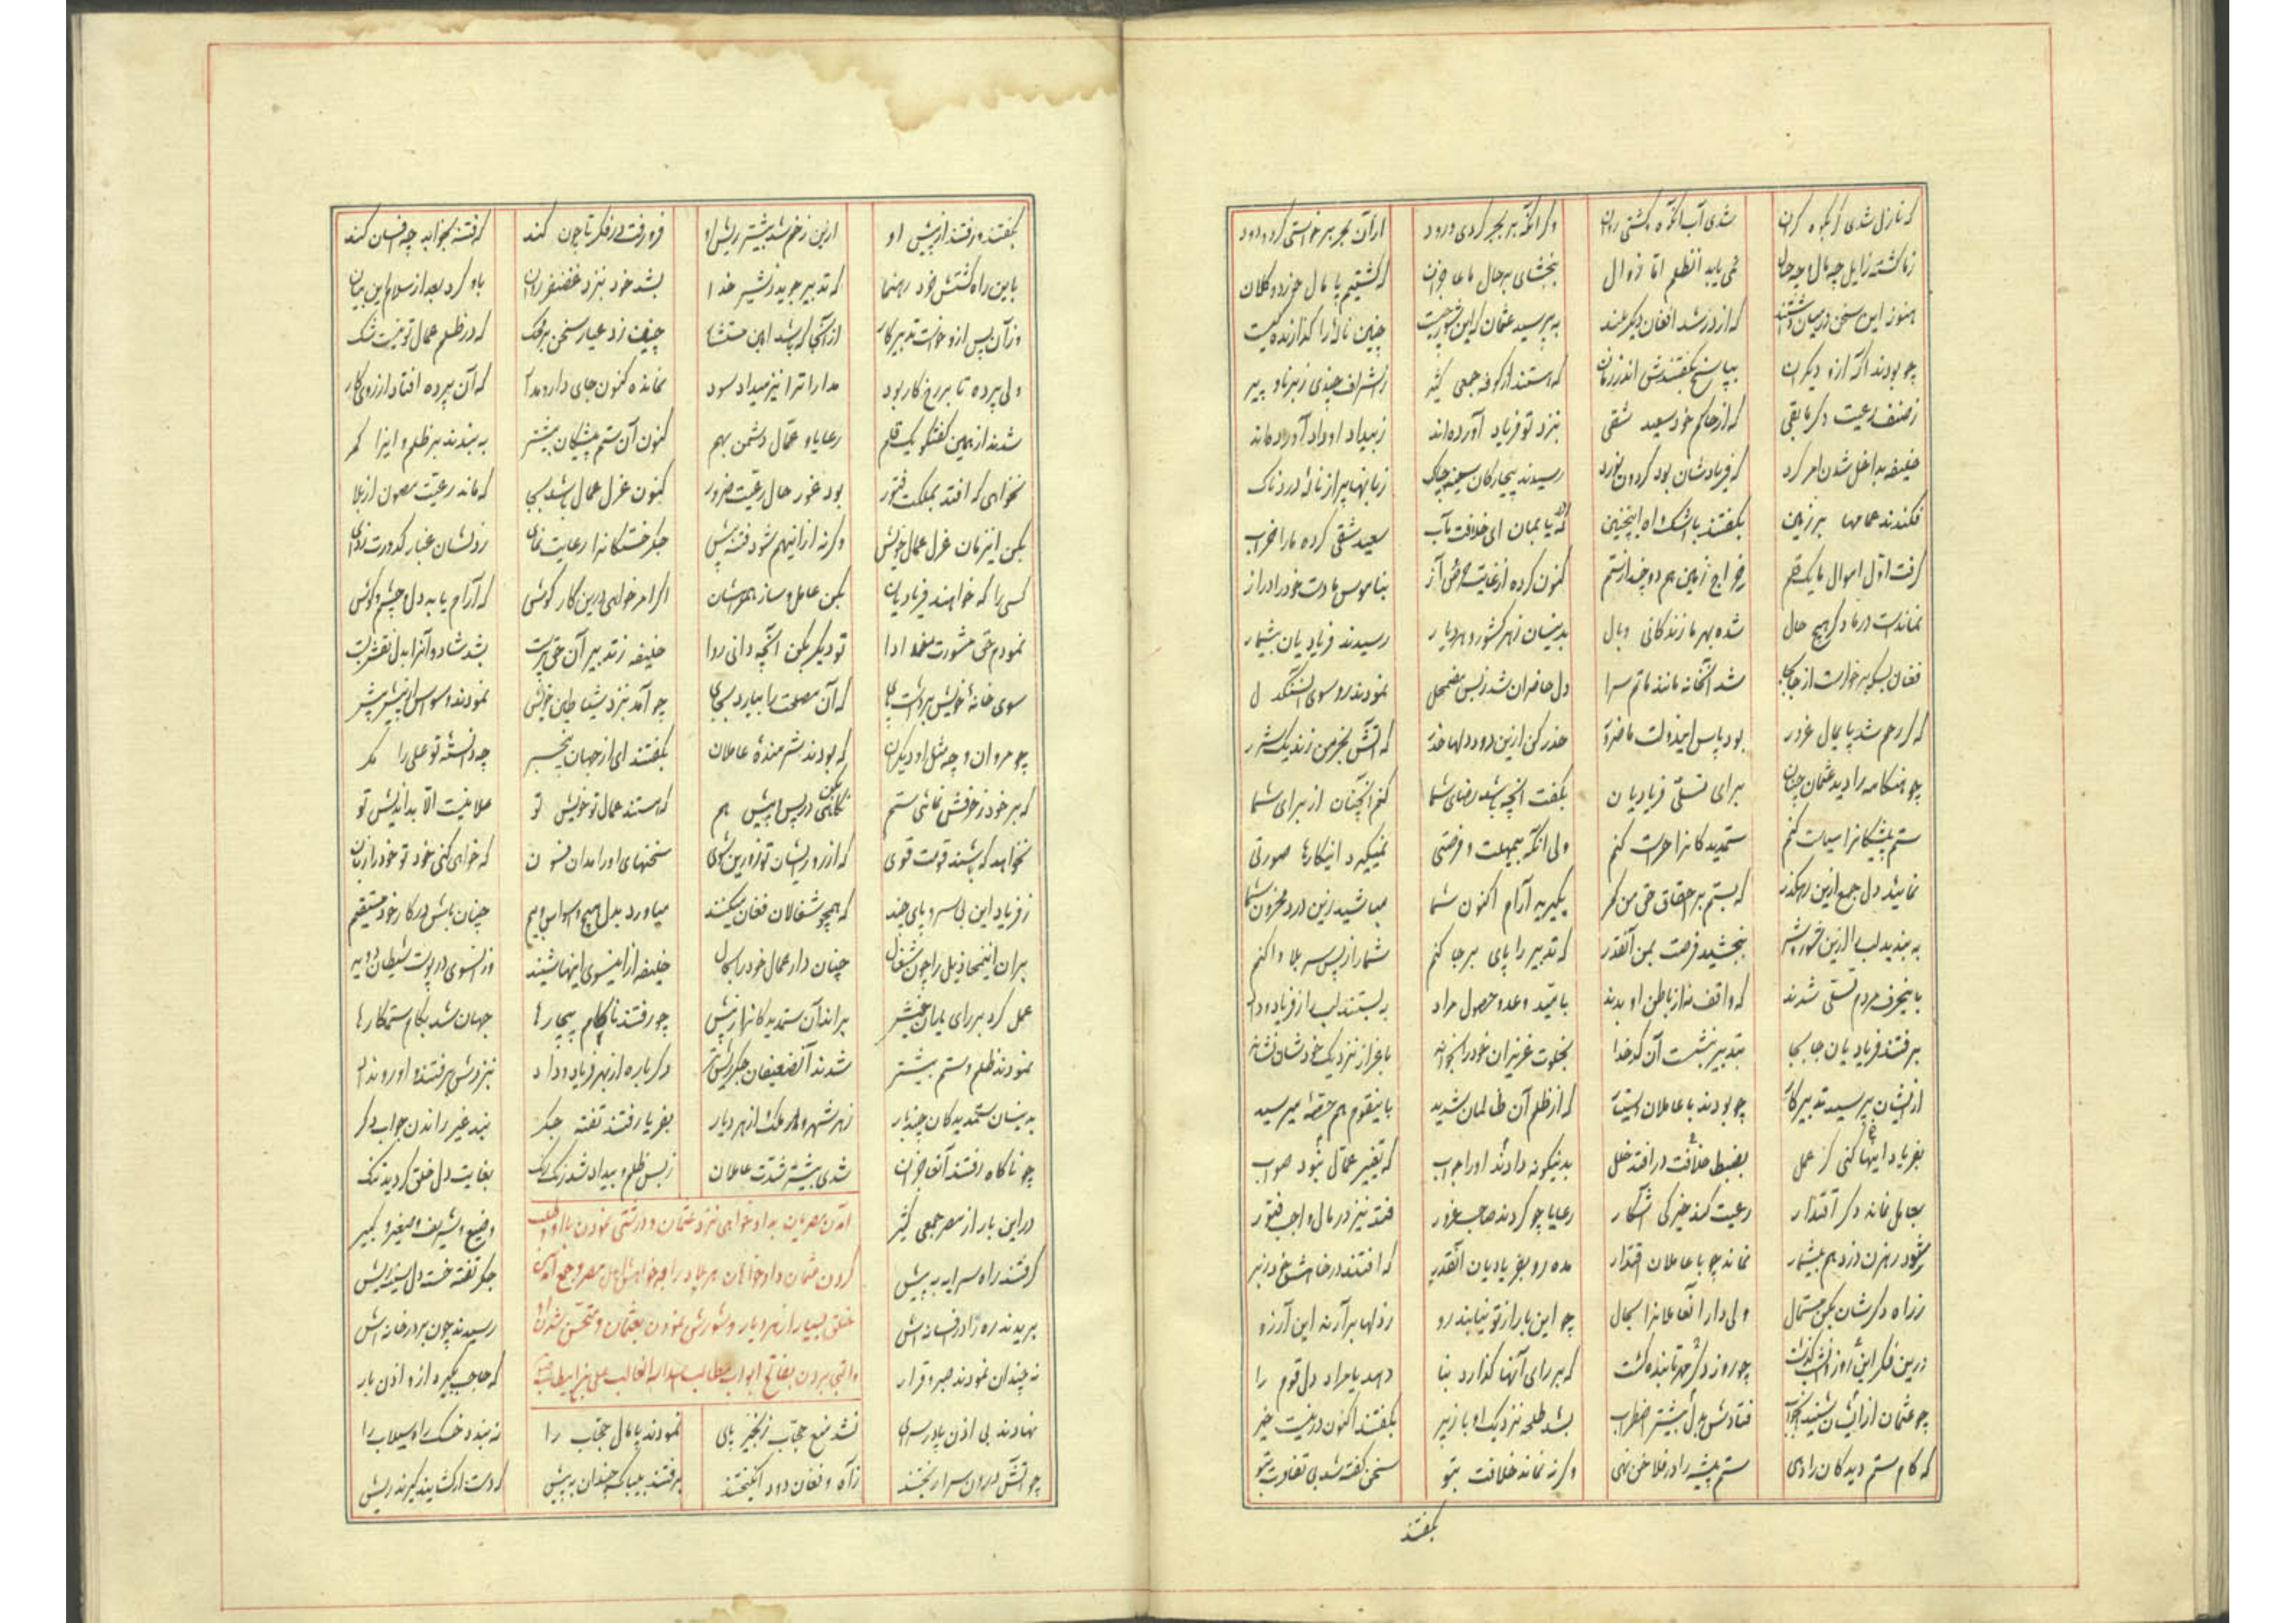 که نازل شدی گر بکوه گران شدی آب آنکوه و گشتی روان وگر آنکه بر بحر کردی ورود از آن بحر برخواستی گرد و دود
نمی یابد آنظلم اما زوال ببخشای بر حال ما عاجزان که گشتیم پامال خورد و کلان
هنوز این سخن در میان داشتند که از در شد افغان دیگر بلند بپرسید عثمان که این شور چیست چنین ناله را گذارنده کیست
چو بودند آگه ازو دیگران بپاسخ بگفتندش اندر زمان که هستند از کوفه جمعی کثیر ز اشراف چندی ز برنا و پیر
ز صنف رعیت دگر مابقی که از حاکم خود سعید شقی بنزد تو فریاد آورده‌اند ز بیداد او داد آورده‌اند
خلیفه بداخل شدن امر کرد که فریادشان بود گردون نورد رسیدند بیچارگان سینه چاک زبانها پر از ناله دردناک
فکندند عمامها بر زمین بگفتند با اشک و آه اینچنین ای خلافت مآب سعید شقی کرده ما را خراب
گرفت اول اموال ما یک قلم خراج زمین هم دو چند از ستم کنون کرده از غایت حرص و آز بناموس ما دست خود را دراز
نماندست در ما دگر هیچ حال شده بهر ما زندگانی وبال بدینسان ز هر کشور و هر دیار رسیدند فریادیان بیشمار
فغان بسکه برخواست از جابجا شد آنخانه مانند ماتم سرا دل حاضران شد ز بس مضمحل نمودند رو سوی آن سنگدل
که گر رحم شد پایمال غرور بود پاس ایندولت ما ضرور حذر کن ازین دود دلها حذر که آتش بخرمن زند یک شرر
چو هنگامه را دید عثمان چنان برای تسلی فریادیان بگفت آنچه باشد رضای شما کنم آنچنان از برای شما
ستم پیشگانرا سیاست کنم ستمدیدگانرا حراست کنم ولی آنکه بیمهلت و فرصتی نمیگیرد اینکارها صورتی
نمائید دل جمع ازین رهگذر که بستم بر احقاق حق من کمر بگیرید آرام اکنون شما مباشید زین درد محزون شما
به بندید لب را ازین شور و شر ببخشید فرصت بمن آنقدر که تدبیر را پای برجا کنم شما را ز پس سر بلا وا کنم
باینحرف مردم تسلی شدند که واقف نه از باطن او بدند بامید وعده و حصول مراد به بستند لب را ز فریاد و داد
برفتند فریادیان جابجا بتدبیر بنشست آن کدخدا بخلوت عزیزان خود را بخواند باعزاز نزدیک خودشان نشاند
از ایشان بپرسید تدبیر کار چو بودند با عاملان که از ظلم آن ظالمان شدید باینقوم هم حصه میرسید
بفریاد اینها کنی گر عمل بضبط خلافت در افتد خلل بدینگونه دادند او را جواب که تغییر عمال نبود صواب
بعامل نماند دگر اقتدار رعیت کند خیرگی آشکار رعایا چو گردند صاحب غرور فتد نیز در مال واجب فتور
شود رهزن و دزد هم بیشمار نماند چو با عاملان اقتدار مده رو بفریادیان آنقدر که افتند در خانه
ز راه دگرشان بکن مستمال ولی دار آنعاملانرا بحال چو این بار از تو نیابند رو ز دلها برآرند این آرزو
درین فکر این روز و شب گذشت چو روز دگر مهر تابنده گشت که بر رای آنها گذارد بنا دهد یا مراد دل قوم را
چو عثمان از ایشان شنید این جواب فتادش بدل بیشتر اضطراب بشد طلحه نزدیک او با زبیر بگفتند اکنون درین نیست خیر
که کام ستم دیدگان را دهی ستم پیشه را در فلاخن نهی وگرنه نماند خلافت بتو سخن گفته شد بی تفاوت بتو
بگفتند
بگفتند و رفتند از پیش او ازین زخم شد بیشتر ریش او فرو رفت در فکر تا چون کند که فتنه بخوابد چه افسان کند
باین راه گشتش خرد رهنما که تدبیر جوید ز شیر خدا بشد خود بنزد غضنفر روان باو کرد بعد از سلام این بیان
وز آن پس ازو خواست تدبیر کار از آنجا که باشد امین مستشار چنین زد عیار سخن بر محک که در ظلم عمال تو نیست شک
ولی پرده تا بر رخ کار بود مدارا ترا نیز میداد سود نمانده کنون جای دارومدار که آن پرده افتاد از روی کار
شدند از همین گفتگو یک قلم رعایا و عمال دشمن بهم کنون آن ستم پیشگان بیشتر به بندند بر ظلم و ایذا کمر
نخواهی که افتد بملکت فتور بود غور حال رعیت ضرور کنون عزل عمال باشد بجا که ماند رعیت مصون از بلا
بکن اینزمان عزل عمال خویش وگرنه ازاینهم شود فتنه بیش جگر خستگانرا رعایت نمای ز دلشان غبار کدورت زدای
کسی را که خواهند فریادیان بکن عامل و ساز همراهشان اگر امر خواهی درین کار کوش که آرام یابد دل و چشم و گوش
نمودم حق مشورت را ادا تو دیگر بکن آنچه دانی روا خلیفه ز تدبیر آن حق پرست بشد شاد و آنرا بدل نقش بست
سوی خانه خویش برداشت پای که آن مصلحت را بیارد بجای چو آمد بنزد شیاطین خویش نمودند وسواس از پیش بیش
چو مروان و چه مثل او دیگران که بودند شرمنده عاملان بگفتند ای از جهان بیخبر چه دانسته تو علی را مگر
که بر خود ز حرفش نمائی ستم نگاهی بکن در پس و پیش هم که هستند عمال تو خویش تو علا نیست الا بداندیش تو
نخواهد که باشند قومت قوی که از زور ایشان تو زورین شوی سخنهای او را مدان فسون که خواهی کنی خود تو خود را زبون
ز فریاد این بی سر و پای چند که همچو شغالان فغان میکنند میاور بدل هیچ وسواس و بیم چنان باش در کار خود مستقیم
بران اینجماعت ذلیل را چون شغال چنان دار عمال خود را بحال خلیفه از اینسوی اینها شنید وز آنسوی در پوست شیطان دوید
عمل کرد بر رای براند آن ستمدیدگانرا ز پیش چو رفتند ناکام بیچارها جهان شد بکام ستمکارها
نمودند ظلم و ستم بیشتر شدند آنضعیفان جگر ریش تر دگرباره از بهر فریاد و داد
بدینسان ستمدیدگان چند بار ز هر شهر و هر ملک از هر دیار بفریاد رفتند تفته جگر ندید غیر راندن جواب دگر
چو ناکام رفتند آنعاجزان شدی بیشتر شدت عاملان ز بس ظلم و بیداد شد رنگ رنگ بغایت دل خلق گردید تنگ
آمدن مصریان بدادخواهی نزد عثمان و درشتی نمودن با او و طلب
کردن عثمان دادخواهان هر بلاد را و خواهش اهل مصر و جمع آمدن
خلق بسیار از هر دیار و شورش نمودن بعثمان و متحصن شدن او
والتجا بردن بفاتح ابواب مطالب اسد الله الغالب علی بن ابیطالب
در این بار از مصر جمعی کثیر وضیع و شریف و صغیر و کبیر
گرفتند راه سرایه به پیش جگر تفته خسته دل سینه ریش
بریدند ره رسیدند چون بر در خانه اش
نه چندان نمودند صبر و قرار که حاجب بگیرد ازو اذن بار
نهادند بی اذن پا در سرای نشد منع حجاب زنجیر پای نمودند پامال حجاب را نه بندد خسک راه سیلاب را
چو آتش درون سرا ریختند ز آه و فغان دود انگیختند برفتند بیباک چندان به پیش که دست ار کشایند گیرند ریش